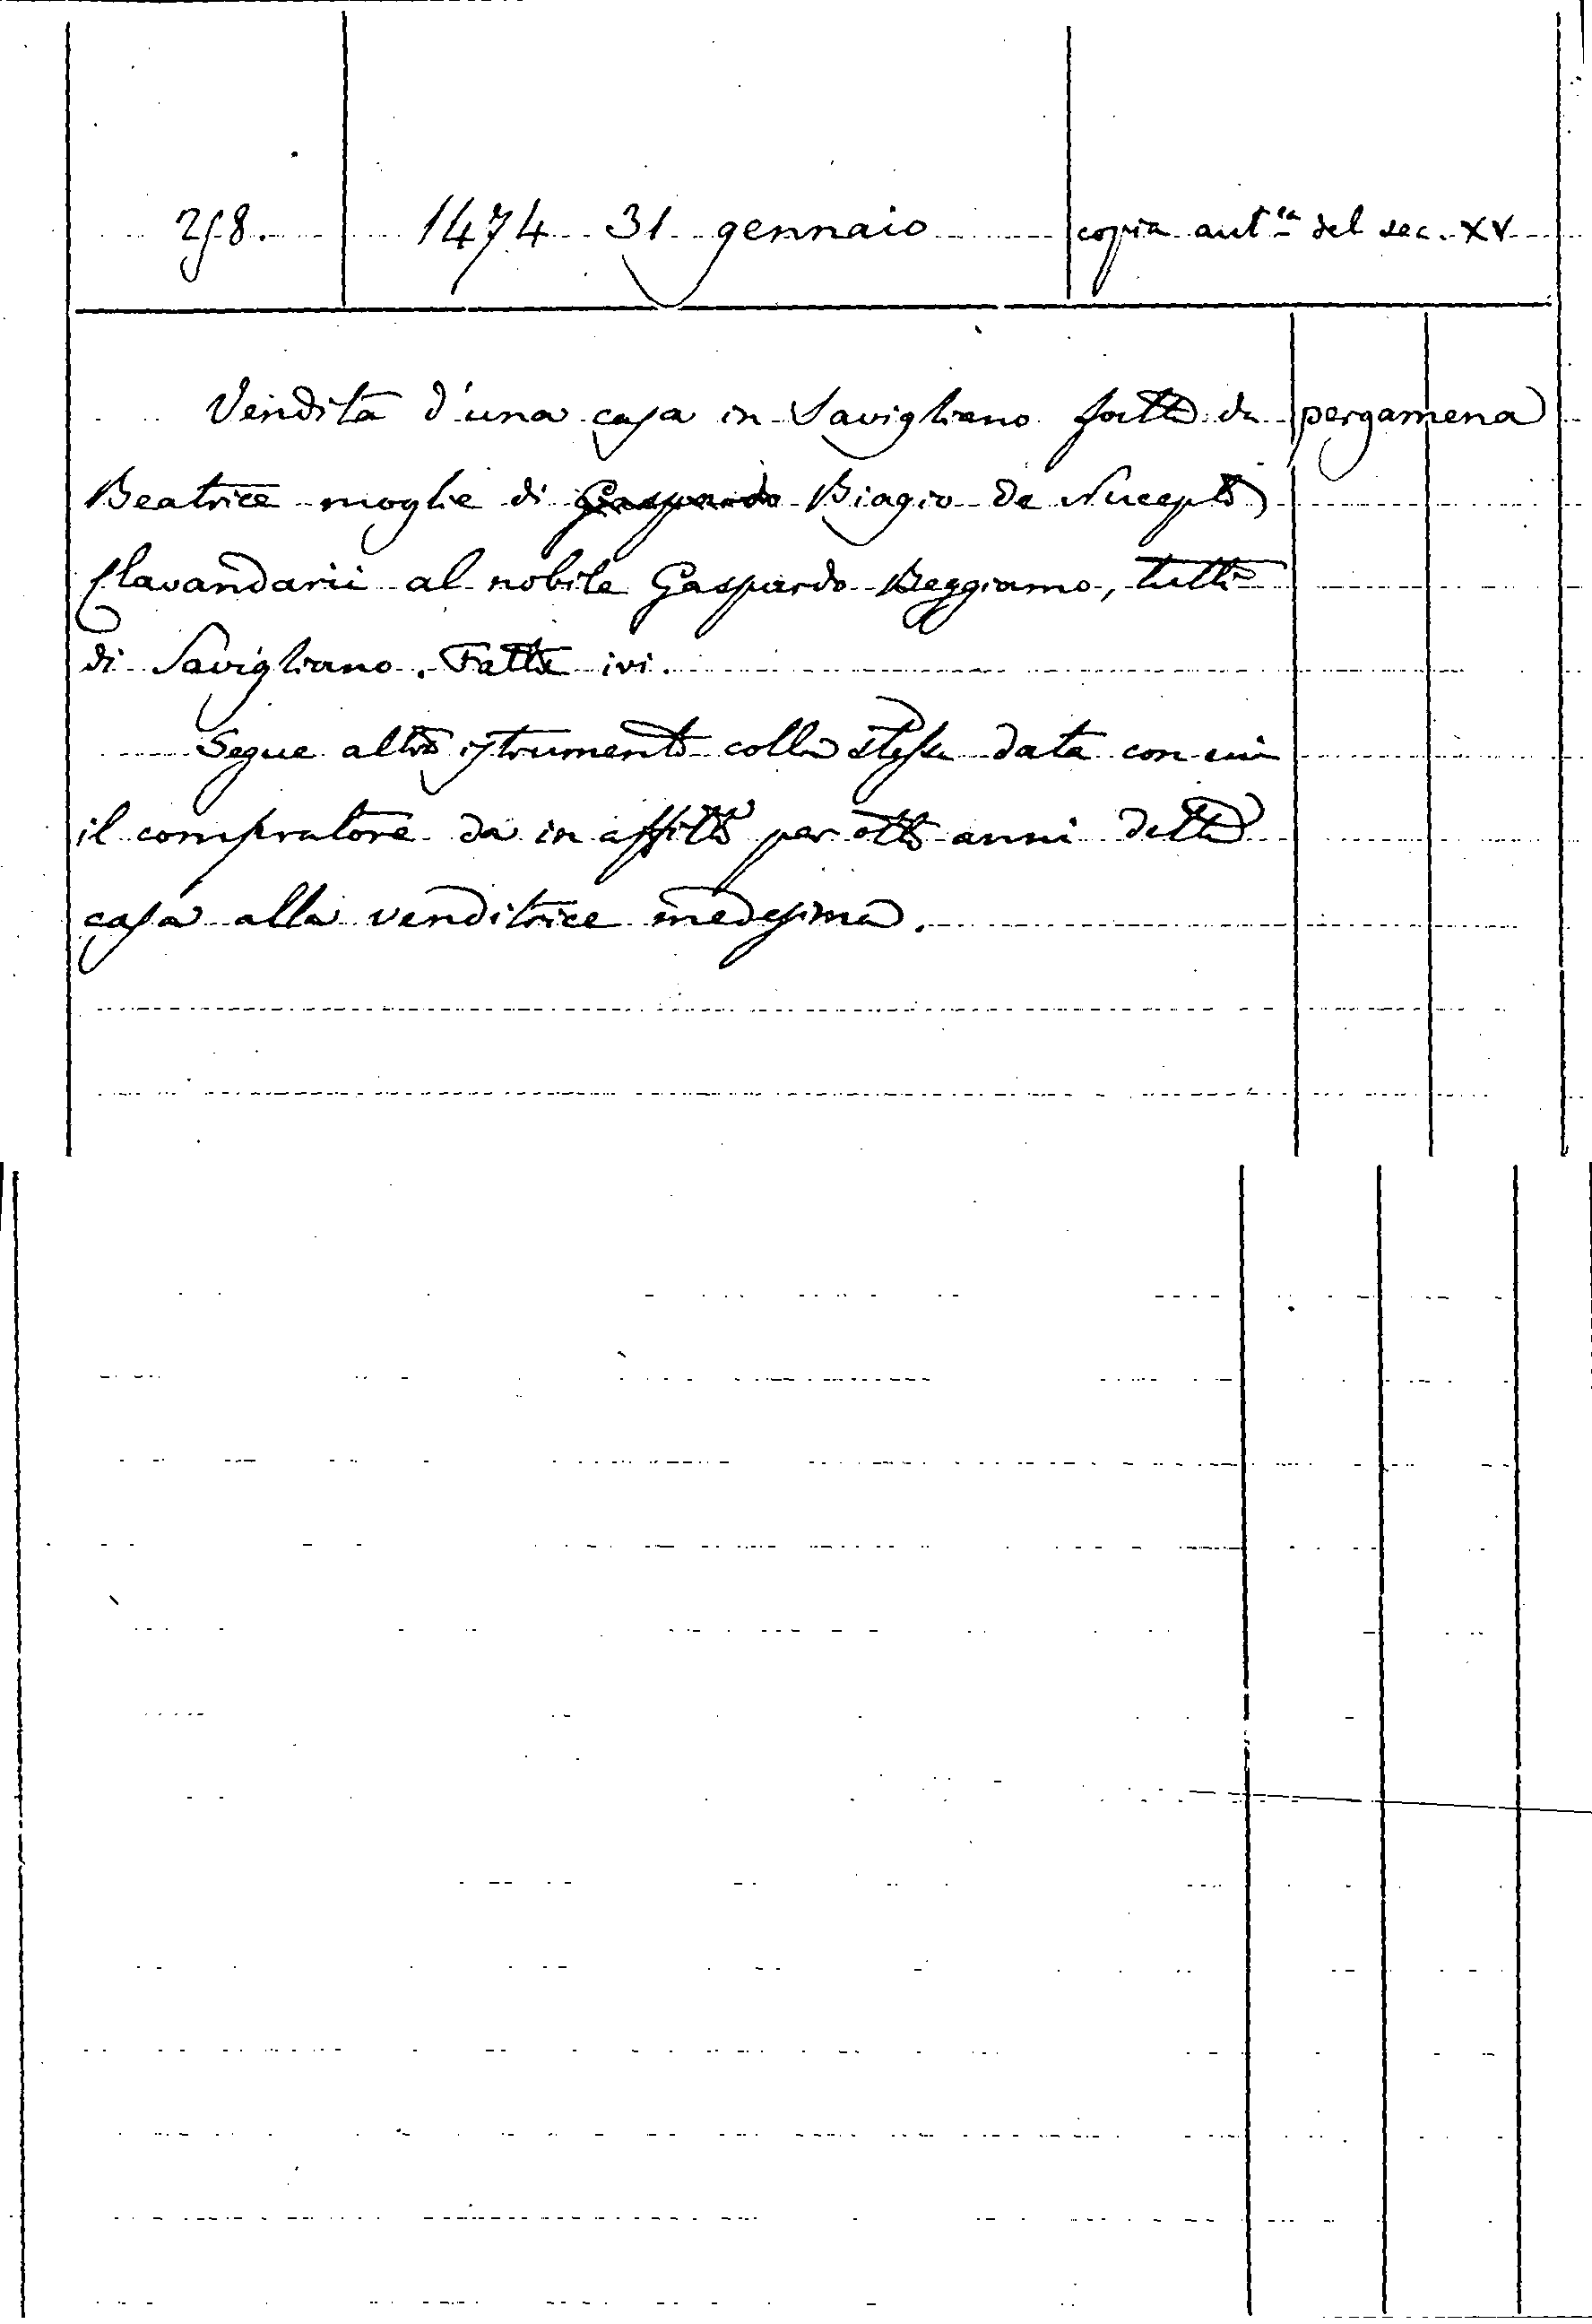 258. 1474 31 gennaio copia aut.ca del sec. XV
Vendita d'una casa in Savigliano fatta da pergamena
Beatrice moglie di Gaspardo Biagio de Nucepto
Clavandarii al nobile Gaspardo Beggiamo, tutti
di Savigliano. Fatta ivi.
Segue altro istrumento colla stessa data con cui
il compratore da in affitto per otto anni detta
casa alla venditrice medesima.